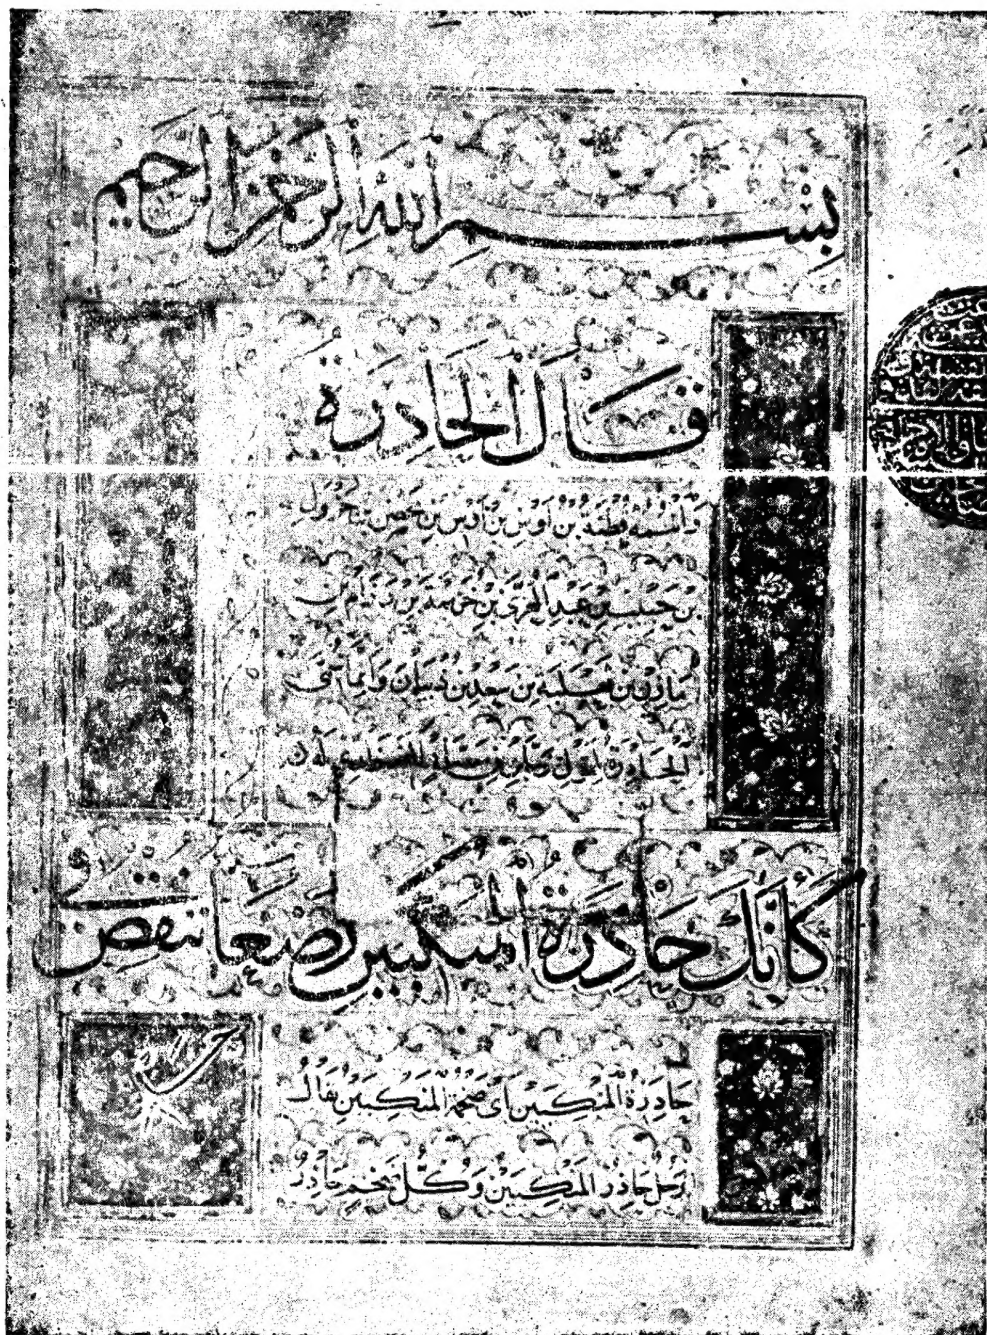 بِسْمِ اللهِ الرَّحْمنِ الرَّحِيمِ
قَالَ الحَادِرَةُ
وَاسْمُهُ قُطْبَةُ بْنُ أَوْسِ بْنِ مِحْصَنِ بْنِ جَرْوَلِ
بْنِ حَبِيبِ بْنِ عَبْدِ العُزَّى بْنِ خُزَيْمَةَ بْنِ رِزَامِ بْنِ
مَازِنِ بْنِ ثَعْلَبَةَ بْنِ سَعْدِ بْنِ ذُبْيَانَ وَإِنَّمَا سُمِّيَ
الْحَادِرَةَ لِقَوْلِ
كَأَنَّكَ حَادِرَةُ الْمَنْكِبَيْنِ رَصْعَاءُ تُنْقِضُ
حَادِرَةُ الْمَنْكِبَيْنِ أَيْ ضَخْمَةُ الْمَنْكِبَيْنِ يُقَالُ
رَجُلٌ حَادِرُ الْمَنْكِبَيْنِ وَكُلُّ ضَخْمٍ حَادِرٌ